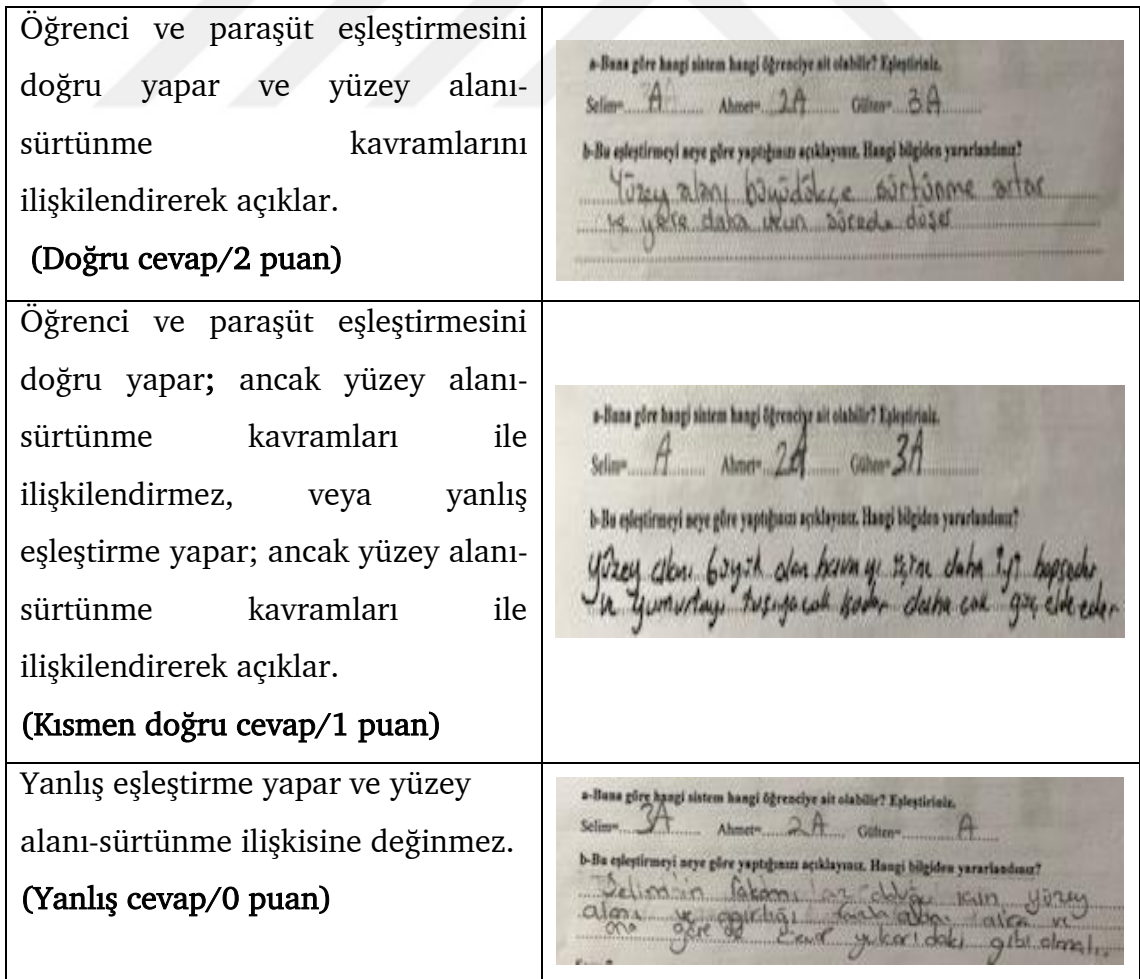 Öğrenci ve paraşüt eşleştirmesini
doğru yapar ve yüzey alanı-
sürtünme kavramlarını
ilişkilendirerek açıklar.
(Doğru cevap/2 puan)
a-Buna göre hangi sistem hangi öğrenciye ait olabilir? Eşleştiriniz.
Selim= A Ahmet= 2A Gülten= 3A
b-Bu eşleştirmeyi neye göre yaptığınızı açıklayınız. Hangi bilgiden yararlandınız?
Yüzey alanı büyüdükçe sürtünme artar
ve yere daha uzun sürede düşer
Öğrenci ve paraşüt eşleştirmesini
doğru yapar; ancak yüzey alanı-
sürtünme kavramları ile
ilişkilendirmez, veya yanlış
eşleştirme yapar; ancak yüzey alanı-
sürtünme kavramları ile
ilişkilendirerek açıklar.
(Kısmen doğru cevap/1 puan)
a-Buna göre hangi sistem hangi öğrenciye ait olabilir? Eşleştiriniz.
Selim= A Ahmet= 2A Gülten= 3A
b-Bu eşleştirmeyi neye göre yaptığınızı açıklayınız. Hangi bilgiden yararlandınız?
Yüzey alanı büyük olan havayı içine daha iyi hapseder
yumurtayı taşıyacak kadar daha çok güç elde eder
Yanlış eşleştirme yapar ve yüzey
alanı-sürtünme ilişkisine değinmez.
(Yanlış cevap/0 puan)
a-Buna göre hangi sistem hangi öğrenciye ait olabilir? Eşleştiriniz.
Selim= 3A Ahmet= 2A Gülten= A
b-Bu eşleştirmeyi neye göre yaptığınızı açıklayınız. Hangi bilgiden yararlandınız?
Selim'in rakamı az olduğu için yüzey
alanı ve ağırlığı fazla
ona göre de yukarıdaki gibi olmalı.